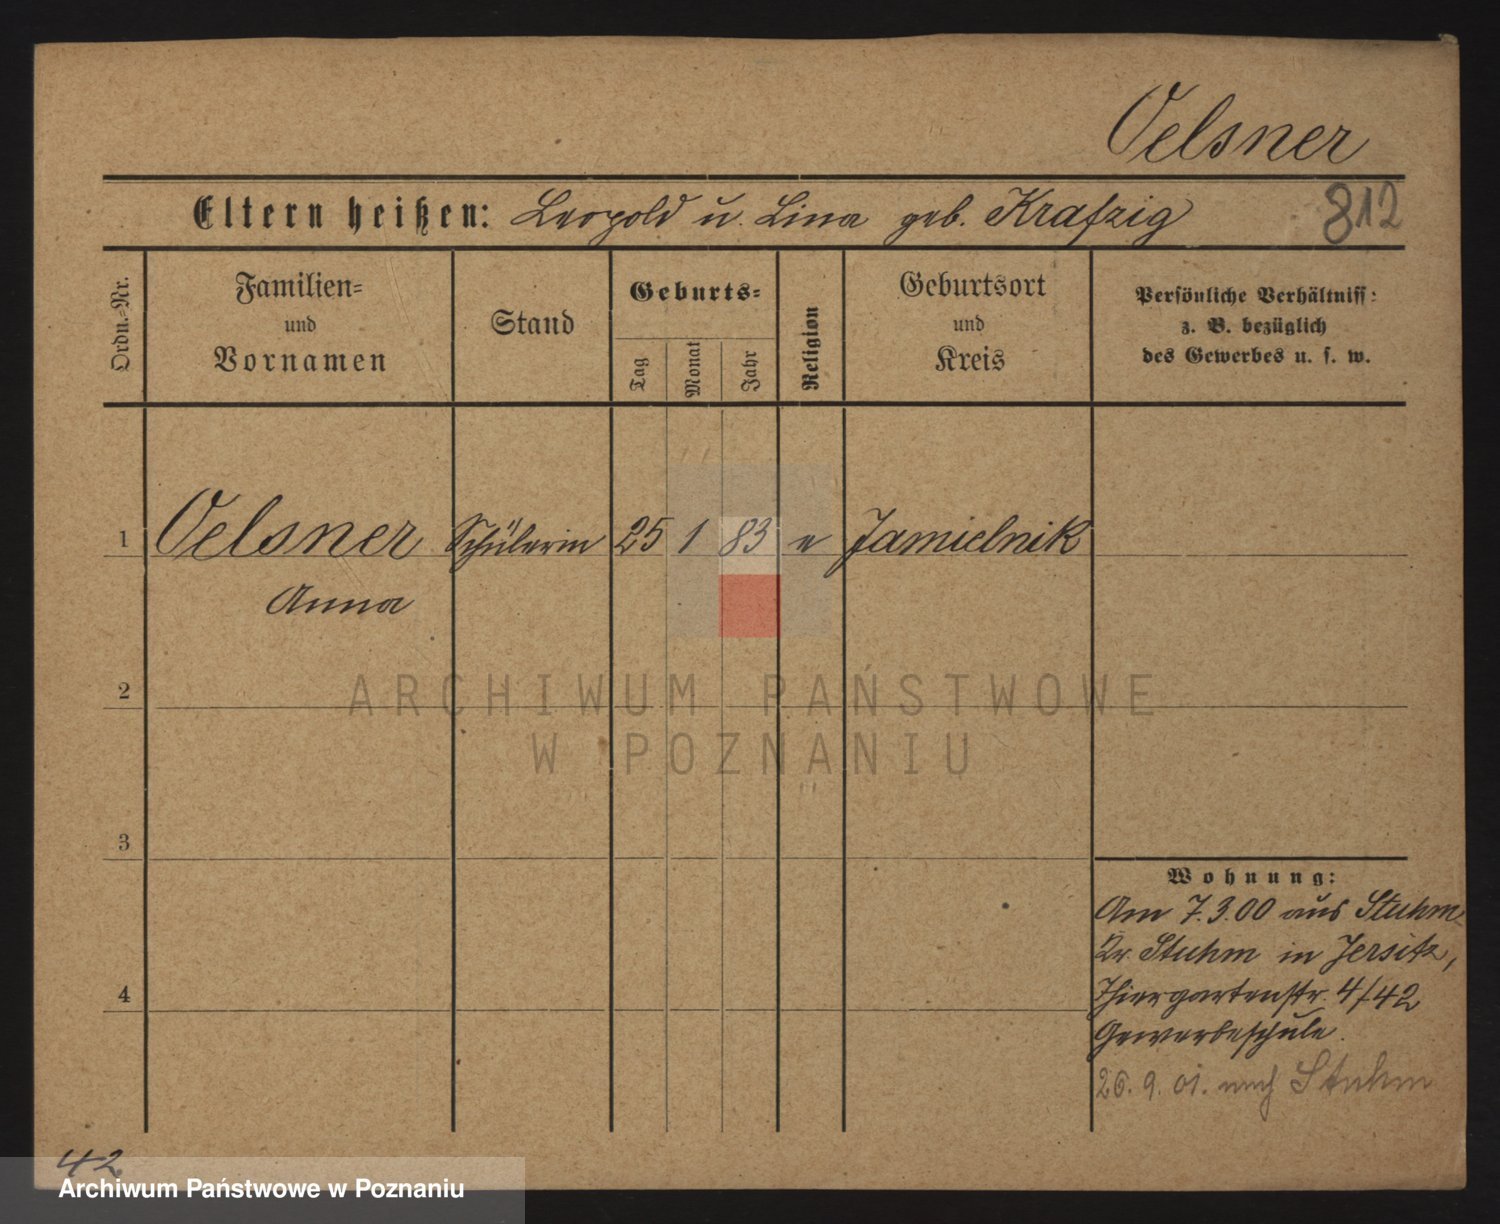 Oelsner
Eltern heißen: Leopold u. Lina geb. Krafzig 812
Ordn.=Nr.
Familien=
und
Vornamen
Stand
Geburts=
Tag
Monat
Jahr
Religion
Geburtsort
und
Kreis
Persönliche Verhältniss:
z. B. bezüglich
des Gewerbes u. s. w.
1 Oelsner Schülerin 25 1 83 e Jamielnik
Anna
2
ARCHIWUM PAŃSTWOWE
W POZNANIU
3
Wohnung:
Am 7.3.00 aus Stuhm
Kr. Stuhm in Jersitz,
4
Thiergartenstr. 4/42
Gewerbeschule.
26.9.01. nach Stuhm
42
Archiwum Państwowe w Poznaniu